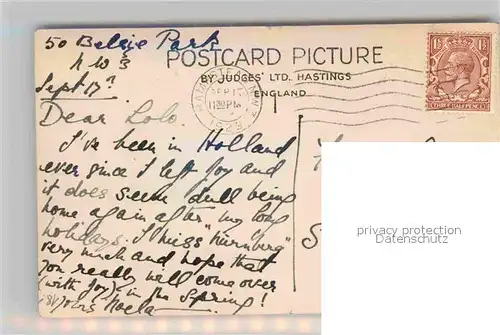 50 Belsize Park
N W 3
POSTCARD PICTURE
BY JUDGES' LTD. HASTINGS
ENGLAND
Sept 17?
Dear Lolo.
I've been in Holland
ever since I left Joy and
it does seem dull being
home again after my long
holidays: I miss "Nürnberg"
very much and hope that
you really will come over
(with Joy) in the Spring!
yours Noela
HAMPSTEAD
SEP 17
1929
THREE HALFPENCE
privacy protection
Datenschutz